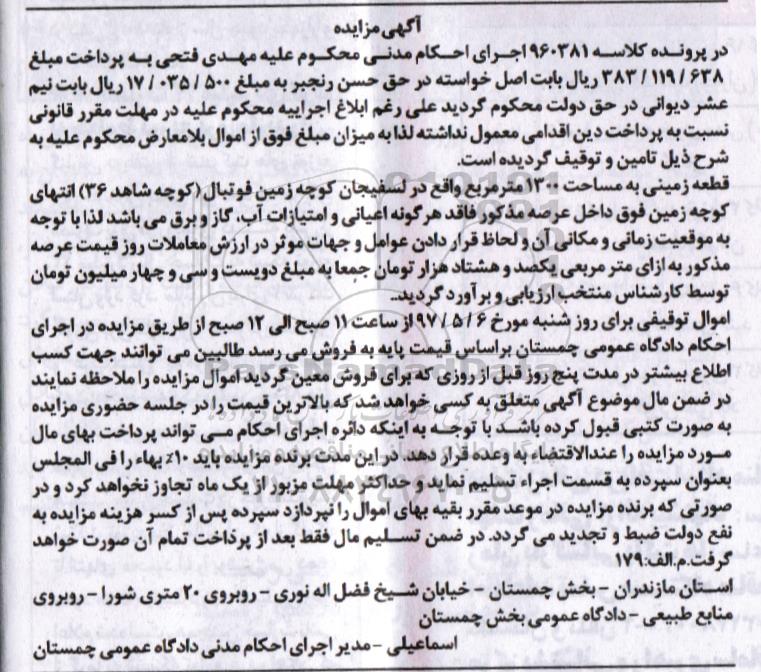 آگهی مزایده
در پرونده کلاسه ۹۶۰۳۸۱ اجرای احکام مدنی محکوم علیه مهدی فتحی به پرداخت مبلغ
۳۸۳/۱۱۹/۶۳۸ ریال بابت اصل خواسته در حق حسن رنجبر به مبلغ ۱۷/۰۳۵/۵۰۰ ریال بابت نیم
عشر دیوانی در حق دولت محکوم گردید علی رغم ابلاغ اجراییه محکوم علیه در مهلت مقرر قانونی
نسبت به پرداخت دین اقدامی معمول نداشته لذا به میزان مبلغ فوق از اموال بلامعارض محکوم علیه به
شرح ذیل تامین و توقیف گردیده است.
قطعه زمینی به مساحت ۱۳۰۰ مترمربع واقع در لسفیجان کوچه زمین فوتبال (کوچه شاهد ۳۶) انتهای
کوچه زمین فوق داخل عرصه مذکور فاقد هرگونه اعیانی و امتیازات آب، گاز و برق می باشد لذا با توجه
به موقعیت زمانی و مکانی آن و لحاظ قرار دادن عوامل و جهات موثر در ارزش معاملات روز قیمت عرصه
مذکور به ازای متر مربعی یکصد و هشتاد هزار تومان جمعا به مبلغ دویست و سی و چهار میلیون تومان
توسط کارشناس منتخب ارزیابی و برآورد گردید.
اموال توقیفی برای روز شنبه مورخ ۹۷/۵/۶ از ساعت ۱۱ صبح الی ۱۲ صبح از طریق مزایده در اجرای
احکام دادگاه عمومی چمستان براساس قیمت پایه به فروش می رسد طالبین می توانند جهت کسب
اطلاع بیشتر در مدت پنج روز قبل از روزی که برای فروش معین گردید اموال مزایده را ملاحظه نمایند
در ضمن مال موضوع آگهی متعلق به کسی خواهد شد که بالاترین قیمت را در جلسه حضوری مزایده
به صورت کتبی قبول کرده باشد با توجه به اینکه دائره اجرای احکام می تواند پرداخت بهای مال
مورد مزایده را عندالاقتضاء به وعده قرار دهد. در این مدت برنده مزایده باید ۱۰٪ بهاء را فی المجلس
بعنوان سپرده به قسمت اجراء تسلیم نماید و حداکثر مهلت مزبور از یک ماه تجاوز نخواهد کرد و در
صورتی که برنده مزایده در موعد مقرر بقیه بهای اموال را نپردازد سپرده پس از کسر هزینه مزایده به
نفع دولت ضبط و تجدید می گردد. در ضمن تسلیم مال فقط بعد از پرداخت تمام آن صورت خواهد
گرفت.م.الف:۱۷۹
استان مازندران – بخش چمستان – خیابان شیخ فضل اله نوری – روبروی ۲۰ متری شورا – روبروی
منابع طبیعی – دادگاه عمومی بخش چمستان
اسماعیلی – مدیر اجرای احکام مدنی دادگاه عمومی چمستان
ParsNamadData